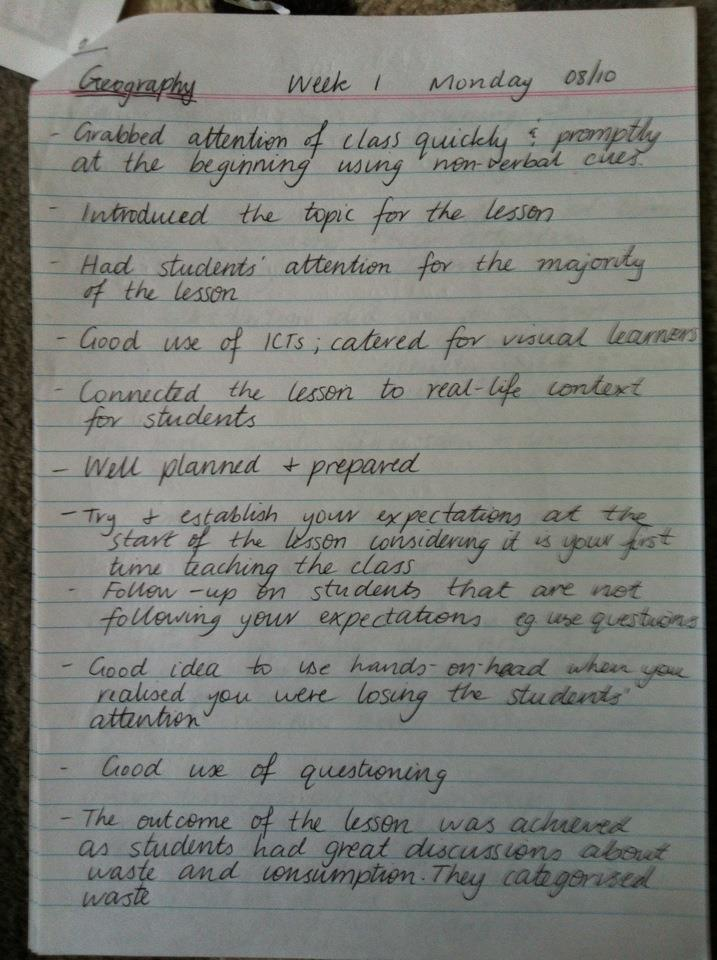 Geography Week 1 Monday 08/10
- Grabbed attention of class quickly & promptly
at the beginning using non-verbal cues.
- Introduced the topic for the lesson
- Had students' attention for the majority
of the lesson
- Good use of ICTs; catered for visual learners
- Connected the lesson to real-life context
for students
- Well planned + prepared
- Try & establish your expectations at the
start of the lesson considering it is your first
time teaching the class
- Follow-up on students that are not
following your expectations eg. use questions
- Good idea to use hands-on-head when you
realised you were losing the students'
attention
- Good use of questioning
- The outcome of the lesson was achieved
as students had great discussions about
waste and consumption. They categorised
waste